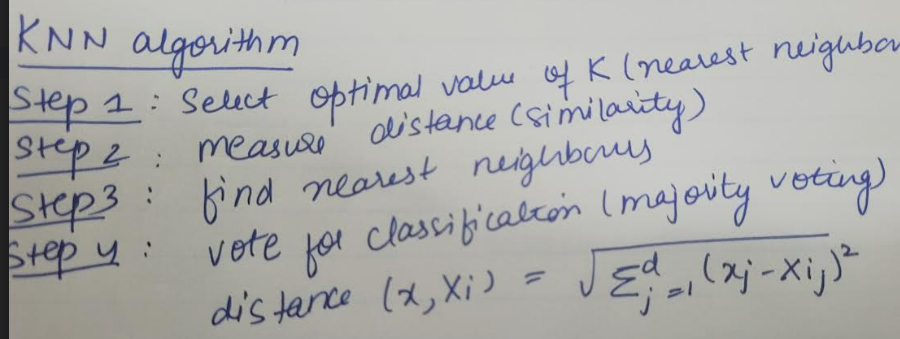 KNN algorithm
Step 1 : Select optimal value of K (nearest neighbou
Step 2 : measure distance (similarity)
Step 3 : find nearest neighbours
Step 4 : vote for classification (majority voting)
distance (x, Xi) = √Σ^d_j=1 (xj - Xij)²